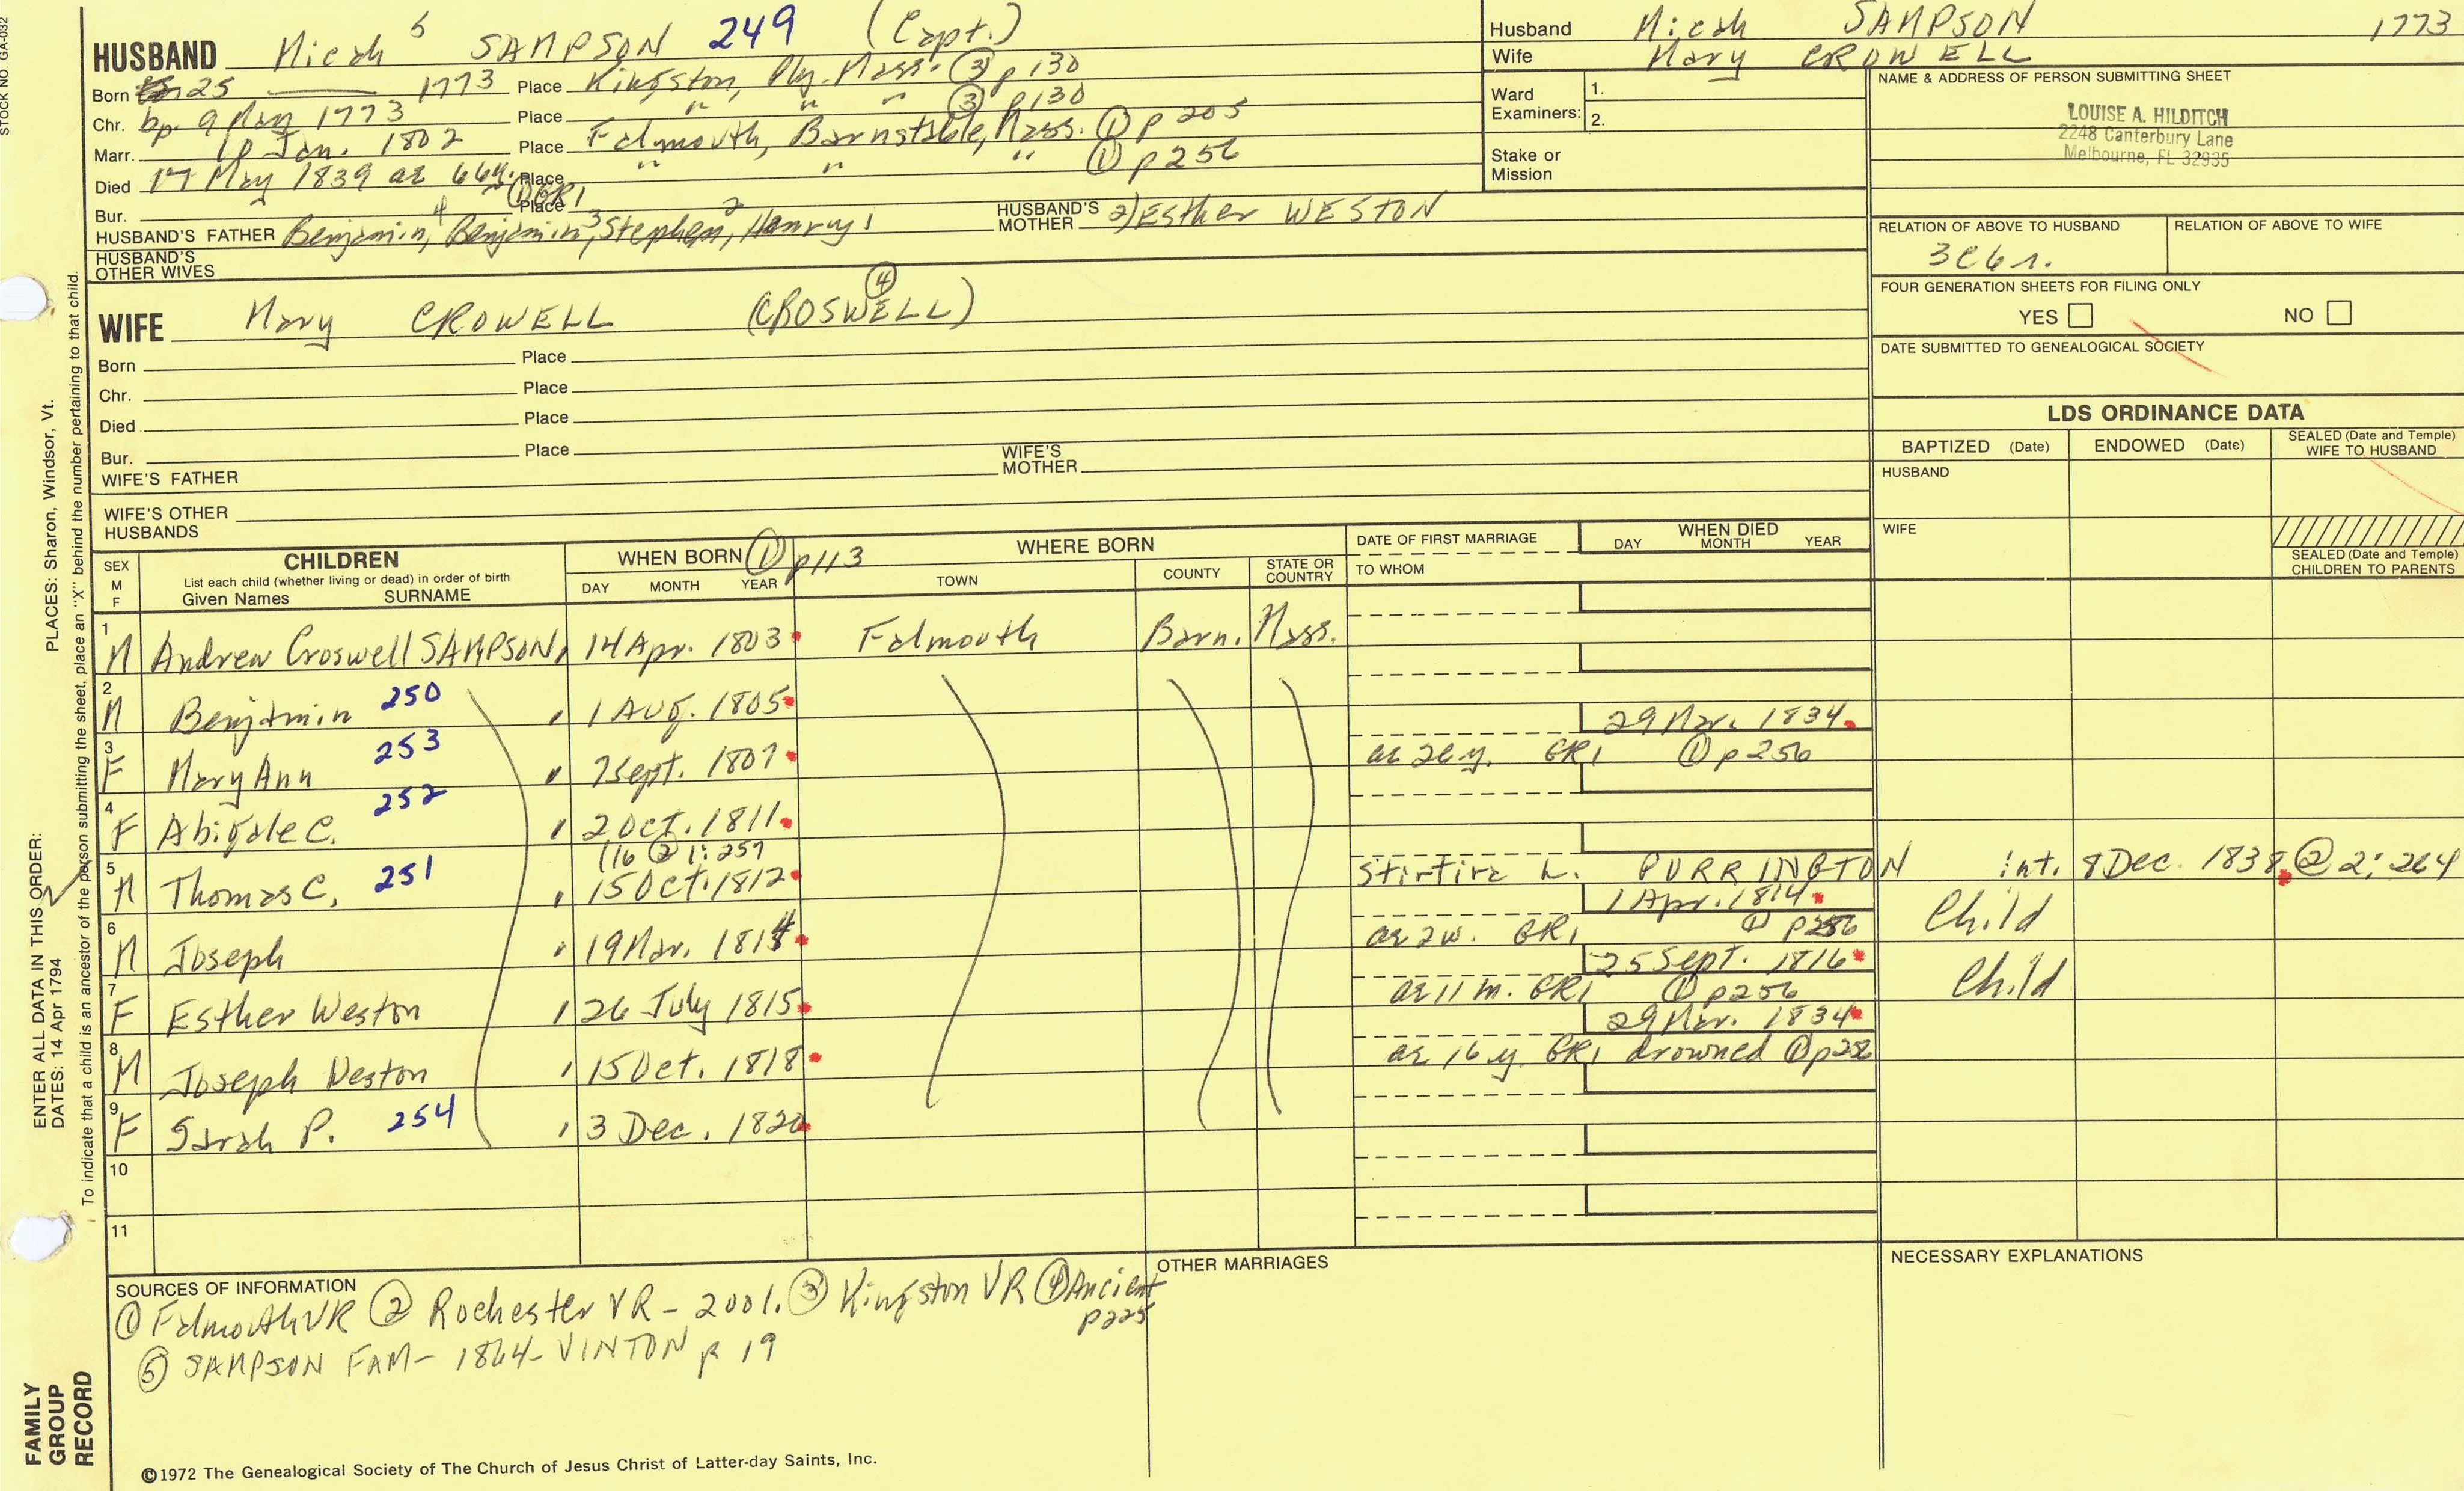 STOCK NO. GA-032
HUSBAND Micah 5 SAMPSON 249 (Capt.)
Born 25 —— 1773 Place Kingston, Ply. Mass. ③ p130
Chr. bp. 9 May 1773 Place " " " ③ p130
Marr. Jan. 1802 Place Falmouth, Barnstable, Mass. ① p205
Died 17 May 1839 ae 66y. Place " " " ① p256
Bur. ① GR1 Place
HUSBAND'S FATHER Benjamin 4, Benjamin 3, Stephen 2, Henry 1 HUSBAND'S MOTHER 2) Esther WESTON
HUSBAND'S OTHER WIVES
WIFE Mary CROWELL (CROSWELL) ④
Born Place
Chr. Place
Died Place
Bur. Place
WIFE'S FATHER WIFE'S MOTHER
WIFE'S OTHER HUSBANDS
Husband Micah SAMPSON 1773
Wife Mary CROWELL
Ward Examiners: 1.
2.
Stake or Mission
NAME & ADDRESS OF PERSON SUBMITTING SHEET
LOUISE A. HILDITCH
2248 Canterbury Lane
Melbourne, FL 32935
RELATION OF ABOVE TO HUSBAND RELATION OF ABOVE TO WIFE
3C6r.
FOUR GENERATION SHEETS FOR FILING ONLY
YES NO
DATE SUBMITTED TO GENEALOGICAL SOCIETY
LDS ORDINANCE DATA
BAPTIZED (Date) ENDOWED (Date) SEALED (Date and Temple) WIFE TO HUSBAND
HUSBAND
WIFE
SEALED (Date and Temple) CHILDREN TO PARENTS
SEX M F CHILDREN WHEN BORN ① p113 WHERE BORN DATE OF FIRST MARRIAGE WHEN DIED
List each child (whether living or dead) in order of birth
Given Names SURNAME DAY MONTH YEAR TOWN COUNTY STATE OR COUNTRY TO WHOM DAY MONTH YEAR
1 M Andrew Croswell SAMPSON, 14 Apr. 1803 Falmouth Barn. Mass.
2 M Benjamin 250 " 1 Aug. 1805 29 Mar. 1834
ae 28y. GR1 ① p256
3 F Mary Ann 253 " 7 Sept. 1807
4 F Abigale C. 252 " 2 Oct. 1811
116 ② 1:259
5 M Thomas C. 251 " 15 Oct. 1812 L. PURRINGTON int. 8 Dec. 1838 ② 2:264
6 M Joseph " 19 Mar. 1814 1 Apr. 1814 Child
ae 2w. GR1 ① p256
7 F Esther Weston " 26 July 1815 25 Sept. 1816 Child
ae 11 m. GR1 ① p256
8 M Joseph Weston " 15 Oct. 1818 29 Mar. 1834
ae 16 y. GR1 drowned ① p256
9 F Sarah P. 254 " 3 Dec. 1820
10
11
SOURCES OF INFORMATION OTHER MARRIAGES NECESSARY EXPLANATIONS
① Falmouth VR ② Rochester VR - 2001. ③ Kingston VR ④ Ancient
p225
⑤ SAMPSON FAM - 1864 - VINTON p 19
©1972 The Genealogical Society of The Church of Jesus Christ of Latter-day Saints, Inc.
FAMILY GROUP RECORD
ENTER ALL DATA IN THIS ORDER:
DATES: 14 Apr 1794
PLACES: Sharon, Windsor, Vt.
To indicate that a child is an ancestor of the person submitting the sheet, place an "X" behind the number pertaining to that child.